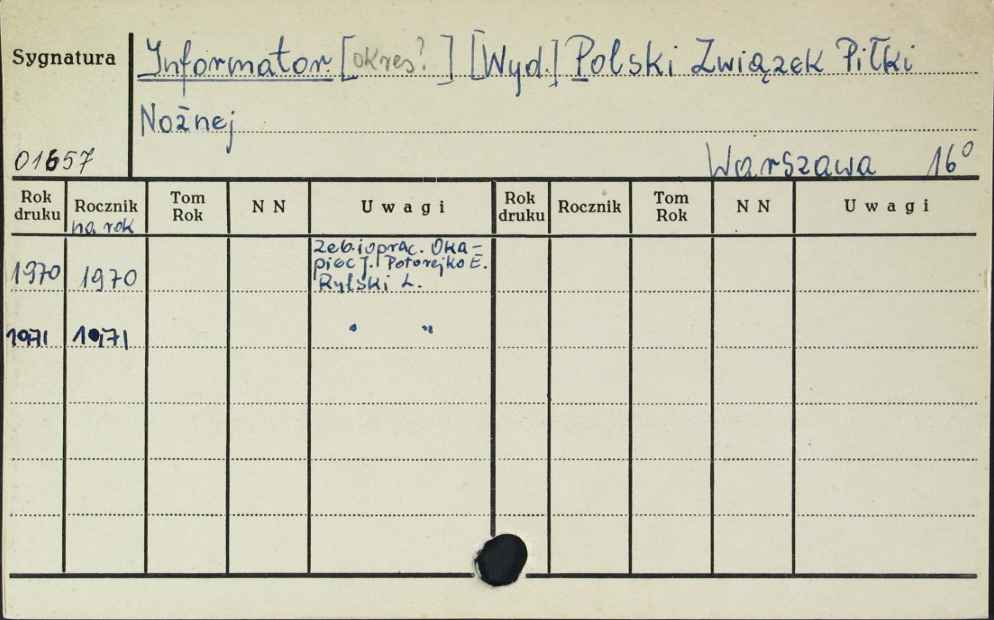 Sygnatura
Informator [okres?] [Wyd.] Polski Związek Piłki
Nożnej
01657
Warszawa 16°
Rok druku Rocznik na rok Tom Rok N N Uwagi Rok druku Rocznik Tom Rok N N Uwagi
1970 1970 Zeb. i oprac. Oka=
piec J. Potorejko E.
Rylski L.
1971 1971 " "